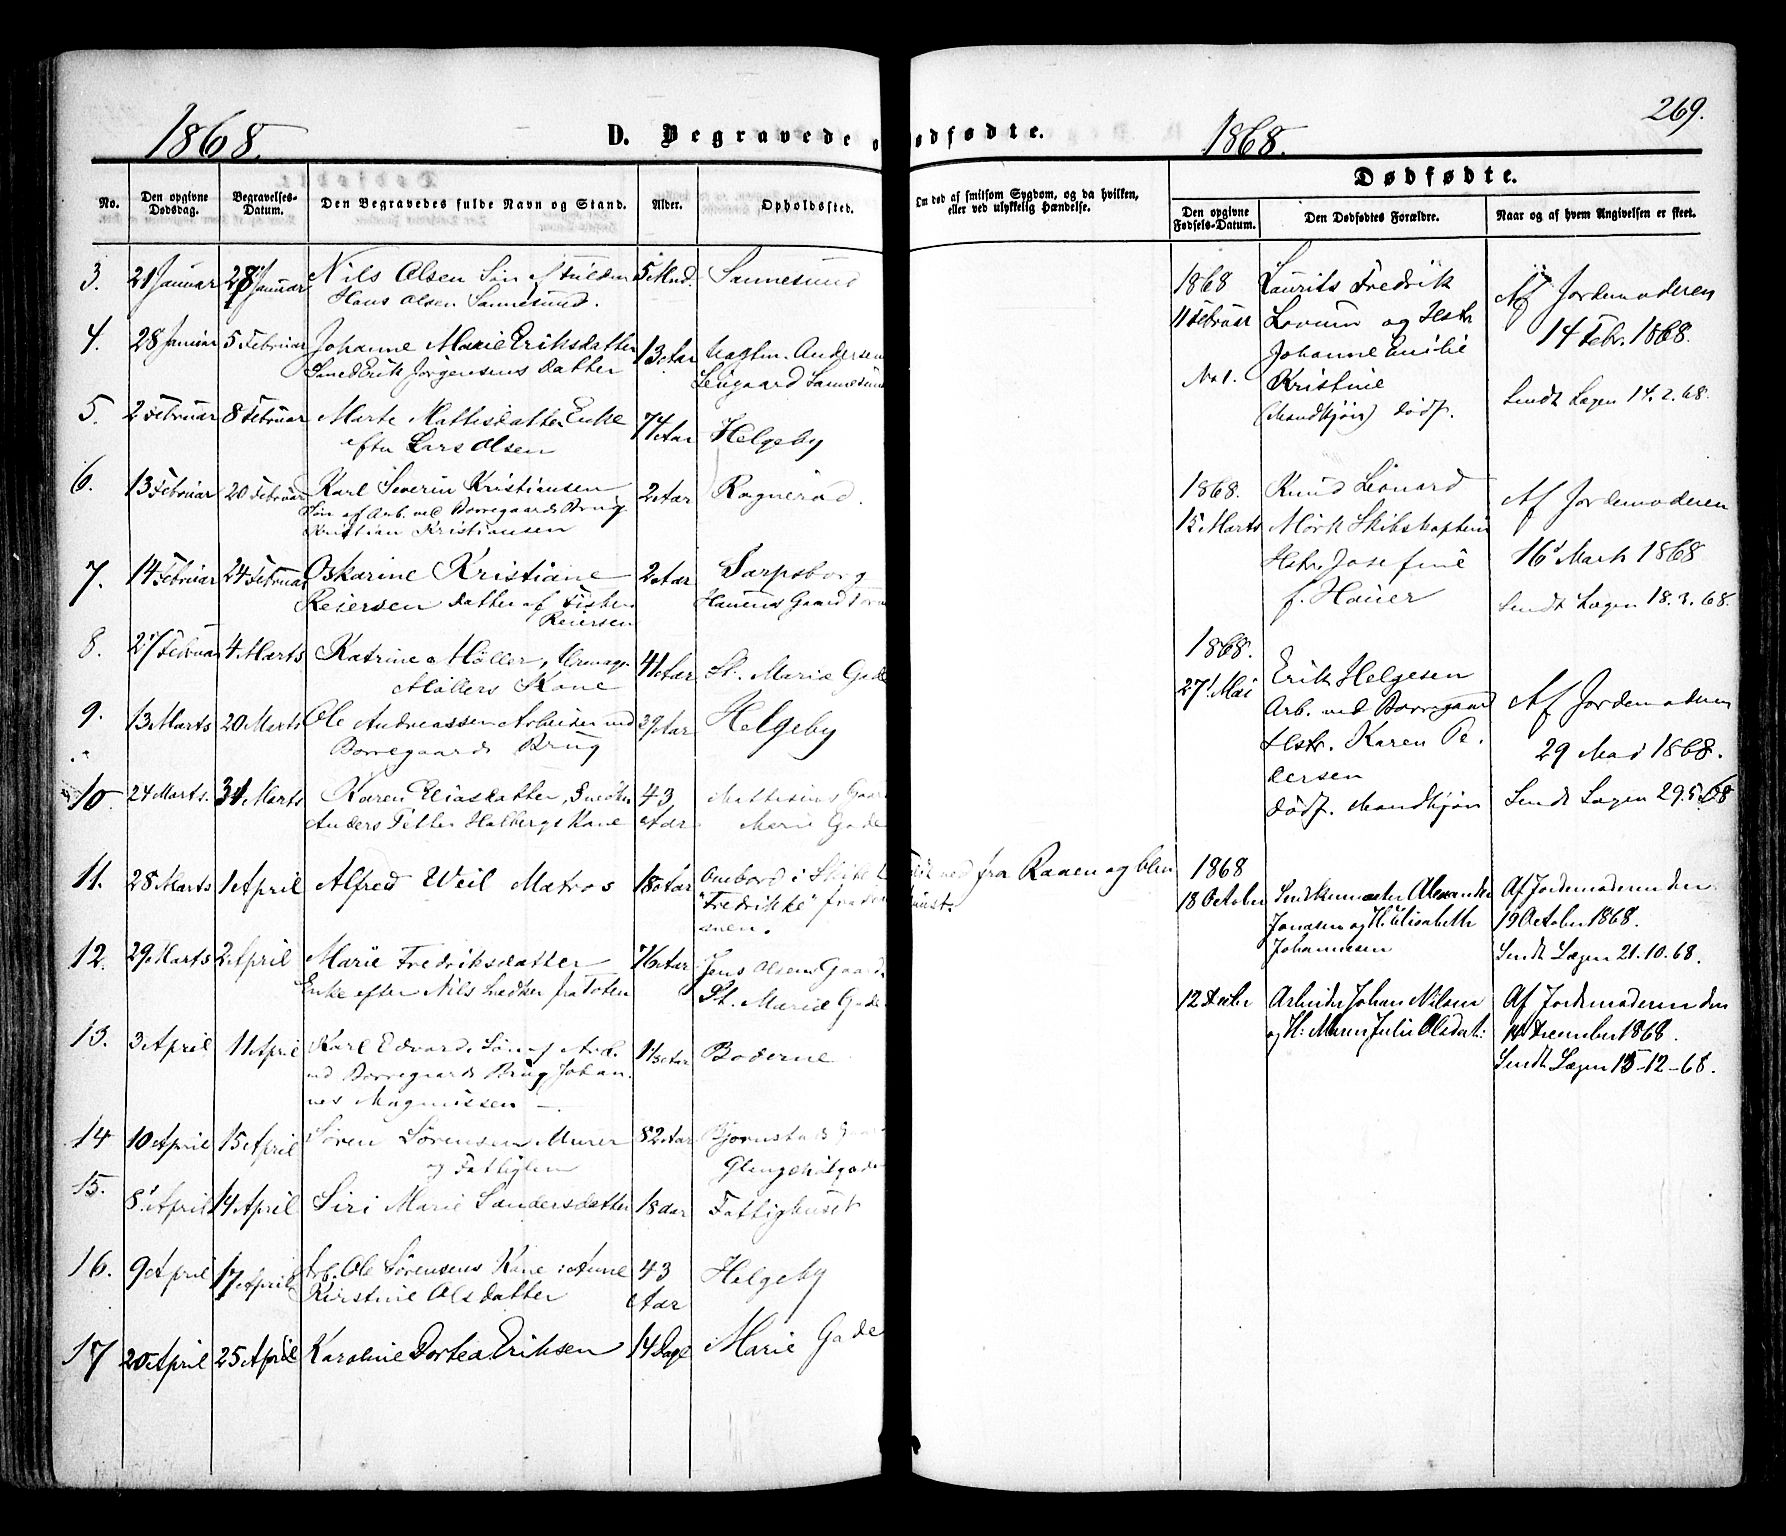 269.
1868. D. Begravede o dfødte. 1868.
Dødfødte.
No. Den opgivne Dødsdag. Begravelses-Datum. Den Begravedes fulde Navn og Stand. Alder. Opholdssted.
Om død af smitsom Sygdom, og da hvilken,
eller ved ulykkelig Hændelse.
Den opgivne Fødsels-Datum. Den Dødfødtes Forældre. Naar og af hvem Angivelsen er skeet.
3. 21 Januar 28 Januar Nils Olsen Søn af 5 Mnd. Sannesund
Hans Olsen Sannesund.
4. 28 Januar 5 Februar Johanne Marie Eriksdatter 13 Aar Andersen
Smed Erik Jørgensens Datter Sannesund
5. 2 Februar 8 Februar Marte Mattisdatter Enke 74 Aar Helgeby
efter Lars Olsen
6. 13 Februar 20 Februar Karl Severin Kristiansen 2 Aar Rognerød.
Søn af Arb. ved Borregaards Brug
Kristian Kristiansen
7. 14 Februar 24 Februar Oskarine Kristiane 2 Aar Sarpsborg
Reiersen Datter af Fisker
Reiersen
8. 27 Februar 4 Marts Katrine Møller, Urmager 41 Aar St. Marie Gade
Møllers Kone
9. 13 Marts 20 Marts Ole Andreassen Arbeider ved 39 Aar Helgeby
Borregaards Brug
10. 24 Marts. 31 Marts Karen Eliasdatter, Snedker 43 Mattisens Gaar
Anders Petter Halbergs Kone Aar Marie Gade
11. 28 Marts 1 April Alfred Weil Matros 18 Aar Ombord i Skibet
"Fredrikke" fra
ned fra Raaen og blev
12. 29 Marts 2 April Marie Fredriksdatter 76 Aar Jens Olsens Gaard
Enke efter Nils Snedker fra Toten St. Marie Gade
13. 3 April 11 April Karl Edvard Søn af Arb. Aar Boderne
ved Borregaards Brug Johan
nes Magnussen —
14 10 April 15 April Søren Sørensen Murer 82 Aar Bjørnstads
og Fatliglem Glengshølgade
15. 8 April 14 April Siri Marie Sandersdatter 18 aar Fattighuset
16. 9 April 17 April Arb. Ole Sørensens Kone Anne 43 Helgeby
Kirstine Olsdatter Aar
17 20 April 25 April Karoline Dortea Eriksen 14 Dage Marie Gade
1868 Laurits Fredrik Af Jordemoderen
11 Februar Lovum og Hstr 14 Febr. 1868.
Johanne Emilie
No 1. Kristine Sendt Lægen 14.2.68.
(Mandkjøn) dødf.
1868. Knud Leonard Af Jordemoderen
15 Marts Mørk Skibskaptein 16 Marts 1868
Hstr Josefine
f. Hauer Sendt Lægen 18.3.68.
1868. Erik Helgesen
27 Mai Arb. ved Borregaard Af Jordemoderen
Hstr. Karen Pe. 29 Mai 1868.
dersen
dødf. Mandkjøn Sendt Lægen 29.5.68
1868
18 October Alexander Af Jordemoderen den
Jonasen og H. Elisabeth 19 October 1868.
Johannesen Sendt Lægen 21.10.68.
12 Arbeider Johan Nilsen Af Jordemoderen den
og H: Maren Julie Olsdat: December 1868.
Sendt Lægen 15-12-68.